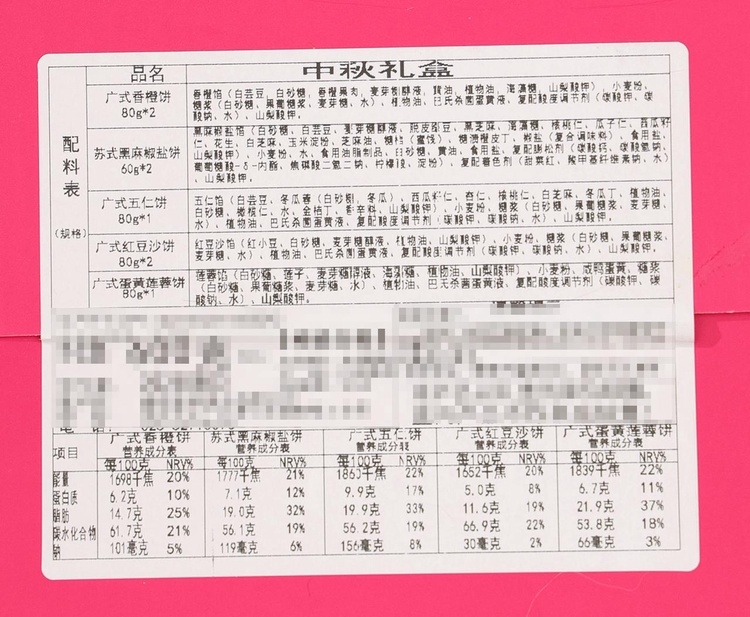 品名 中秋礼盒
配料表
(规格)
广式香橙饼
80g*2
香橙馅（白芸豆、白砂糖、香橙果肉、麦芽糖醇液、黄油、植物油、海藻糖、山梨酸钾）、小麦粉、
糖浆（白砂糖、果葡糖浆、麦芽糖、水）、植物油、巴氏杀菌蛋黄液、复配酸度调节剂（碳酸钾、碳
酸钠、水）、山梨酸钾。
苏式黑麻椒盐饼
60g*2
黑麻椒盐馅（白砂糖、白芸豆、麦芽糖醇液、脱皮绿豆、黑芝麻、海藻糖、核桃仁、瓜子仁、西瓜籽
仁、花生、白芝麻、玉米淀粉、芝麻油、糖桔（蜜饯）、糖渍橙皮丁、椒盐（复合调味料）、食用盐、
山梨酸钾）、小麦粉、水、食用油脂制品、白砂糖、黄油、食用盐、复配膨松剂（碳酸钙、碳酸氢钠、
葡萄糖酸-δ-内酯、焦磷酸二氢二钠、柠檬酸、淀粉）、复配着色剂（甜菜红、羧甲基纤维素钠、水）
、山梨酸钾。
广式五仁饼
80g*1
五仁馅（白芸豆、冬瓜蓉（白砂糖、冬瓜）、西瓜籽仁、杏仁、核桃仁、白芝麻、冬瓜丁、植物油、
白砂糖、橄榄仁、水、金桔丁、香辛料、山梨酸钾）、小麦粉、糖浆（白砂糖、果葡糖浆、麦芽糖、
水）、植物油、巴氏杀菌蛋黄液、复配酸度调节剂（碳酸钾、碳酸钠、水）、山梨酸钾。
广式红豆沙饼
80g*2
红豆沙馅（红小豆、白砂糖、麦芽糖醇液、植物油、山梨酸钾）、小麦粉、糖浆（白砂糖、果葡糖浆、
麦芽糖、水）、植物油、巴氏杀菌蛋黄液、复配酸度调节剂（碳酸钾、碳酸钠、水）、山梨酸钾。
广式蛋黄莲蓉饼
80g*1
莲蓉馅（白砂糖、莲子、麦芽糖醇液、海藻糖、植物油、山梨酸钾）、小麦粉、咸鸭蛋黄、糖浆
（白砂糖、果葡糖浆、麦芽糖、水）、植物油、巴氏杀菌蛋黄液、复配酸度调节剂（碳酸钾、碳
酸钠、水）、山梨酸钾。
项目 广式香橙饼 苏式黑麻椒盐饼 广式五仁饼 广式红豆沙饼 广式蛋黄莲蓉饼
营养成分表 营养成分表 营养成分表 营养成分表 营养成分表
每100克 NRV% 每100克 NRV% 每100克 NRV% 每100克 NRV% 每100克 NRV%
能量 1698千焦 20% 1777千焦 21% 1860千焦 22% 1652千焦 20% 1839千焦 22%
蛋白质 6.2克 10% 7.1克 12% 9.9克 17% 5.0克 8% 6.7克 11%
脂肪 14.7克 25% 19.0克 32% 19.9克 33% 11.6克 19% 21.9克 37%
碳水化合物 61.7克 21% 56.1克 19% 56.2克 19% 66.9克 22% 53.8克 18%
钠 101毫克 5% 119毫克 6% 156毫克 8% 30毫克 2% 66毫克 3%